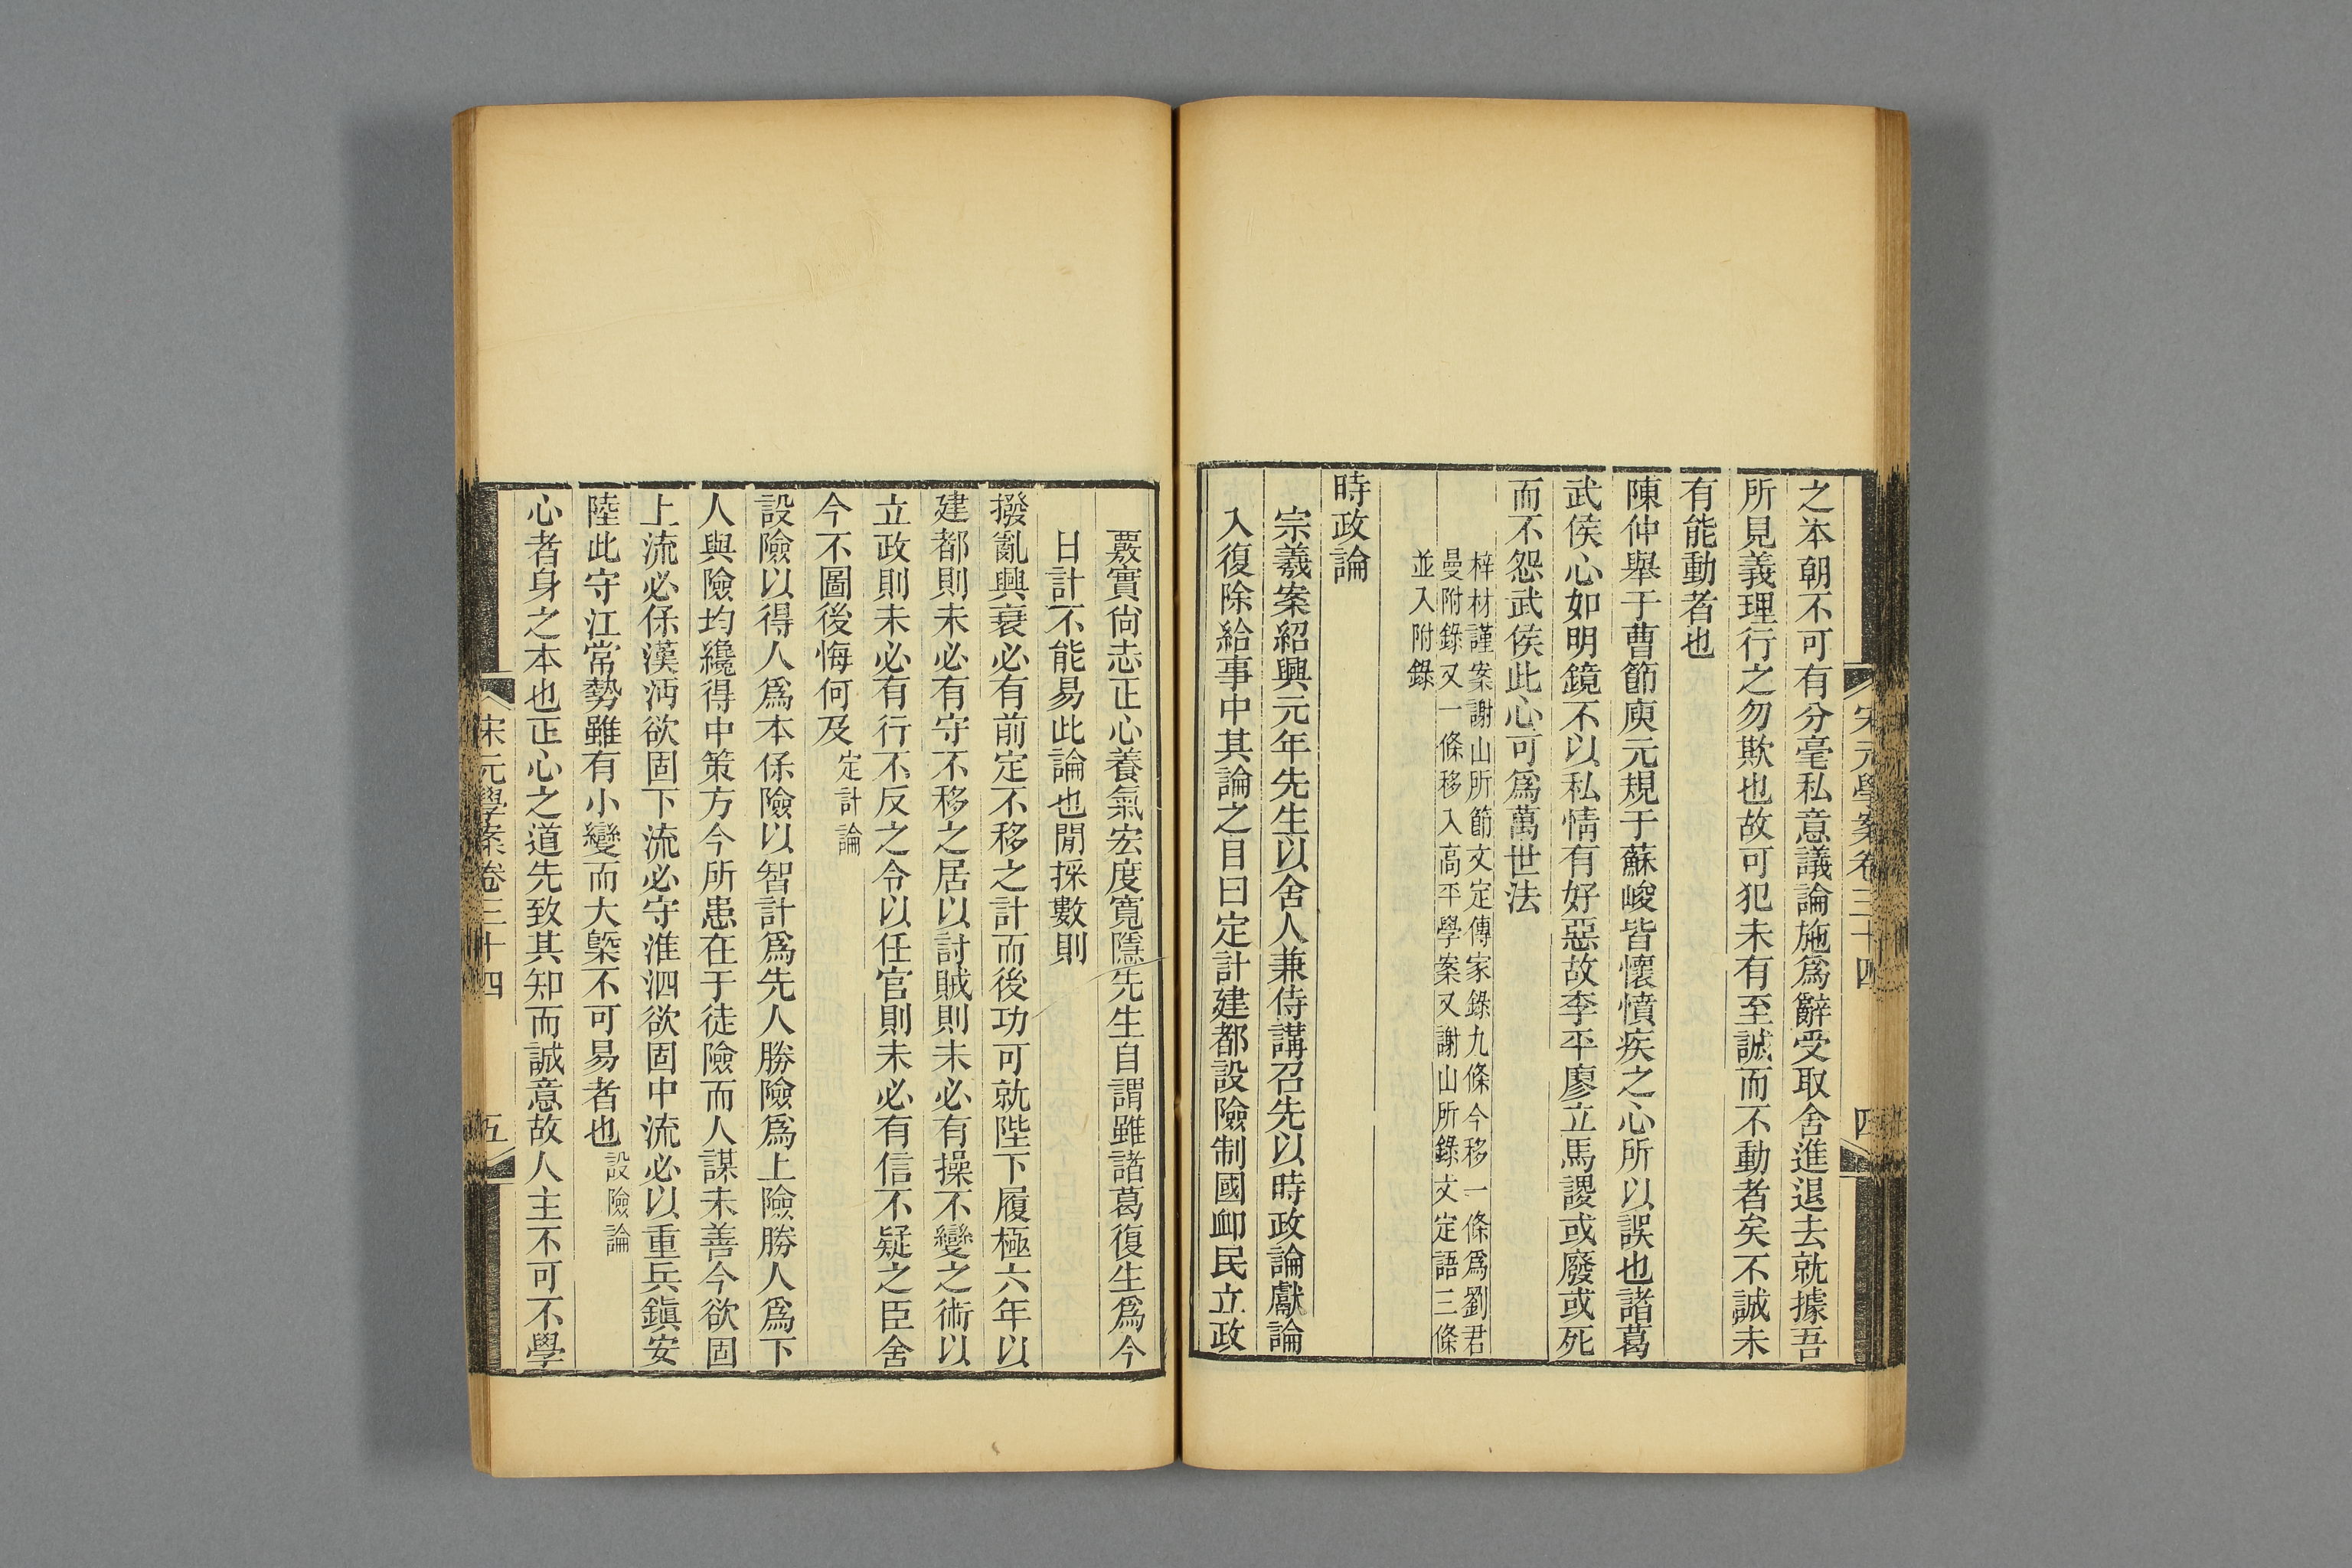 宋元學案卷三十四
四
之本朝不可有分毫私意議論施爲辭受取舍進退去就據吾
所見義理行之勿欺也故可犯未有至誠而不動者矣不誠未
有能動者也
陳仲舉于曹節庾元規于蘇峻皆懷憤疾之心所以誤也諸葛
武侯心如明鏡不以私情有好惡故李平廖立馬謖或廢或死
而不怨武侯此心可爲萬世法
梓材謹案謝山所節文定傳家錄九條今移一條爲劉君
曼附錄又一條移入高平學案又謝山所錄文定語三條
並入附錄
時政論
宗羲案紹興元年先生以舍人兼侍講召先以時政論獻論
入復除給事中其論之目曰定計建都設險制國卹民立政
覈實尚志正心養氣宏度寬隱先生自謂雖諸葛復生爲今
日計不能易此論也閒採數則
撥亂興衰必有前定不移之計而後功可就陛下履極六年以
建都則未必有守不移之居以討賊則未必有操不變之術以
立政則未必有行不反之令以任官則未必有信不疑之臣舍
今不圖後悔何及定計論
設險以得人爲本保險以智計爲先人勝險爲上險勝人爲下
人與險均纔得中策方今所患在于徒險而人謀未善今欲固
上流必保漢沔欲固下流必守淮泗欲固中流必以重兵鎭安
陸此守江常勢雖有小變而大槩不可易者也設險論
心者身之本也正心之道先致其知而誠意故人主不可不學
宋元學案卷三十四
五